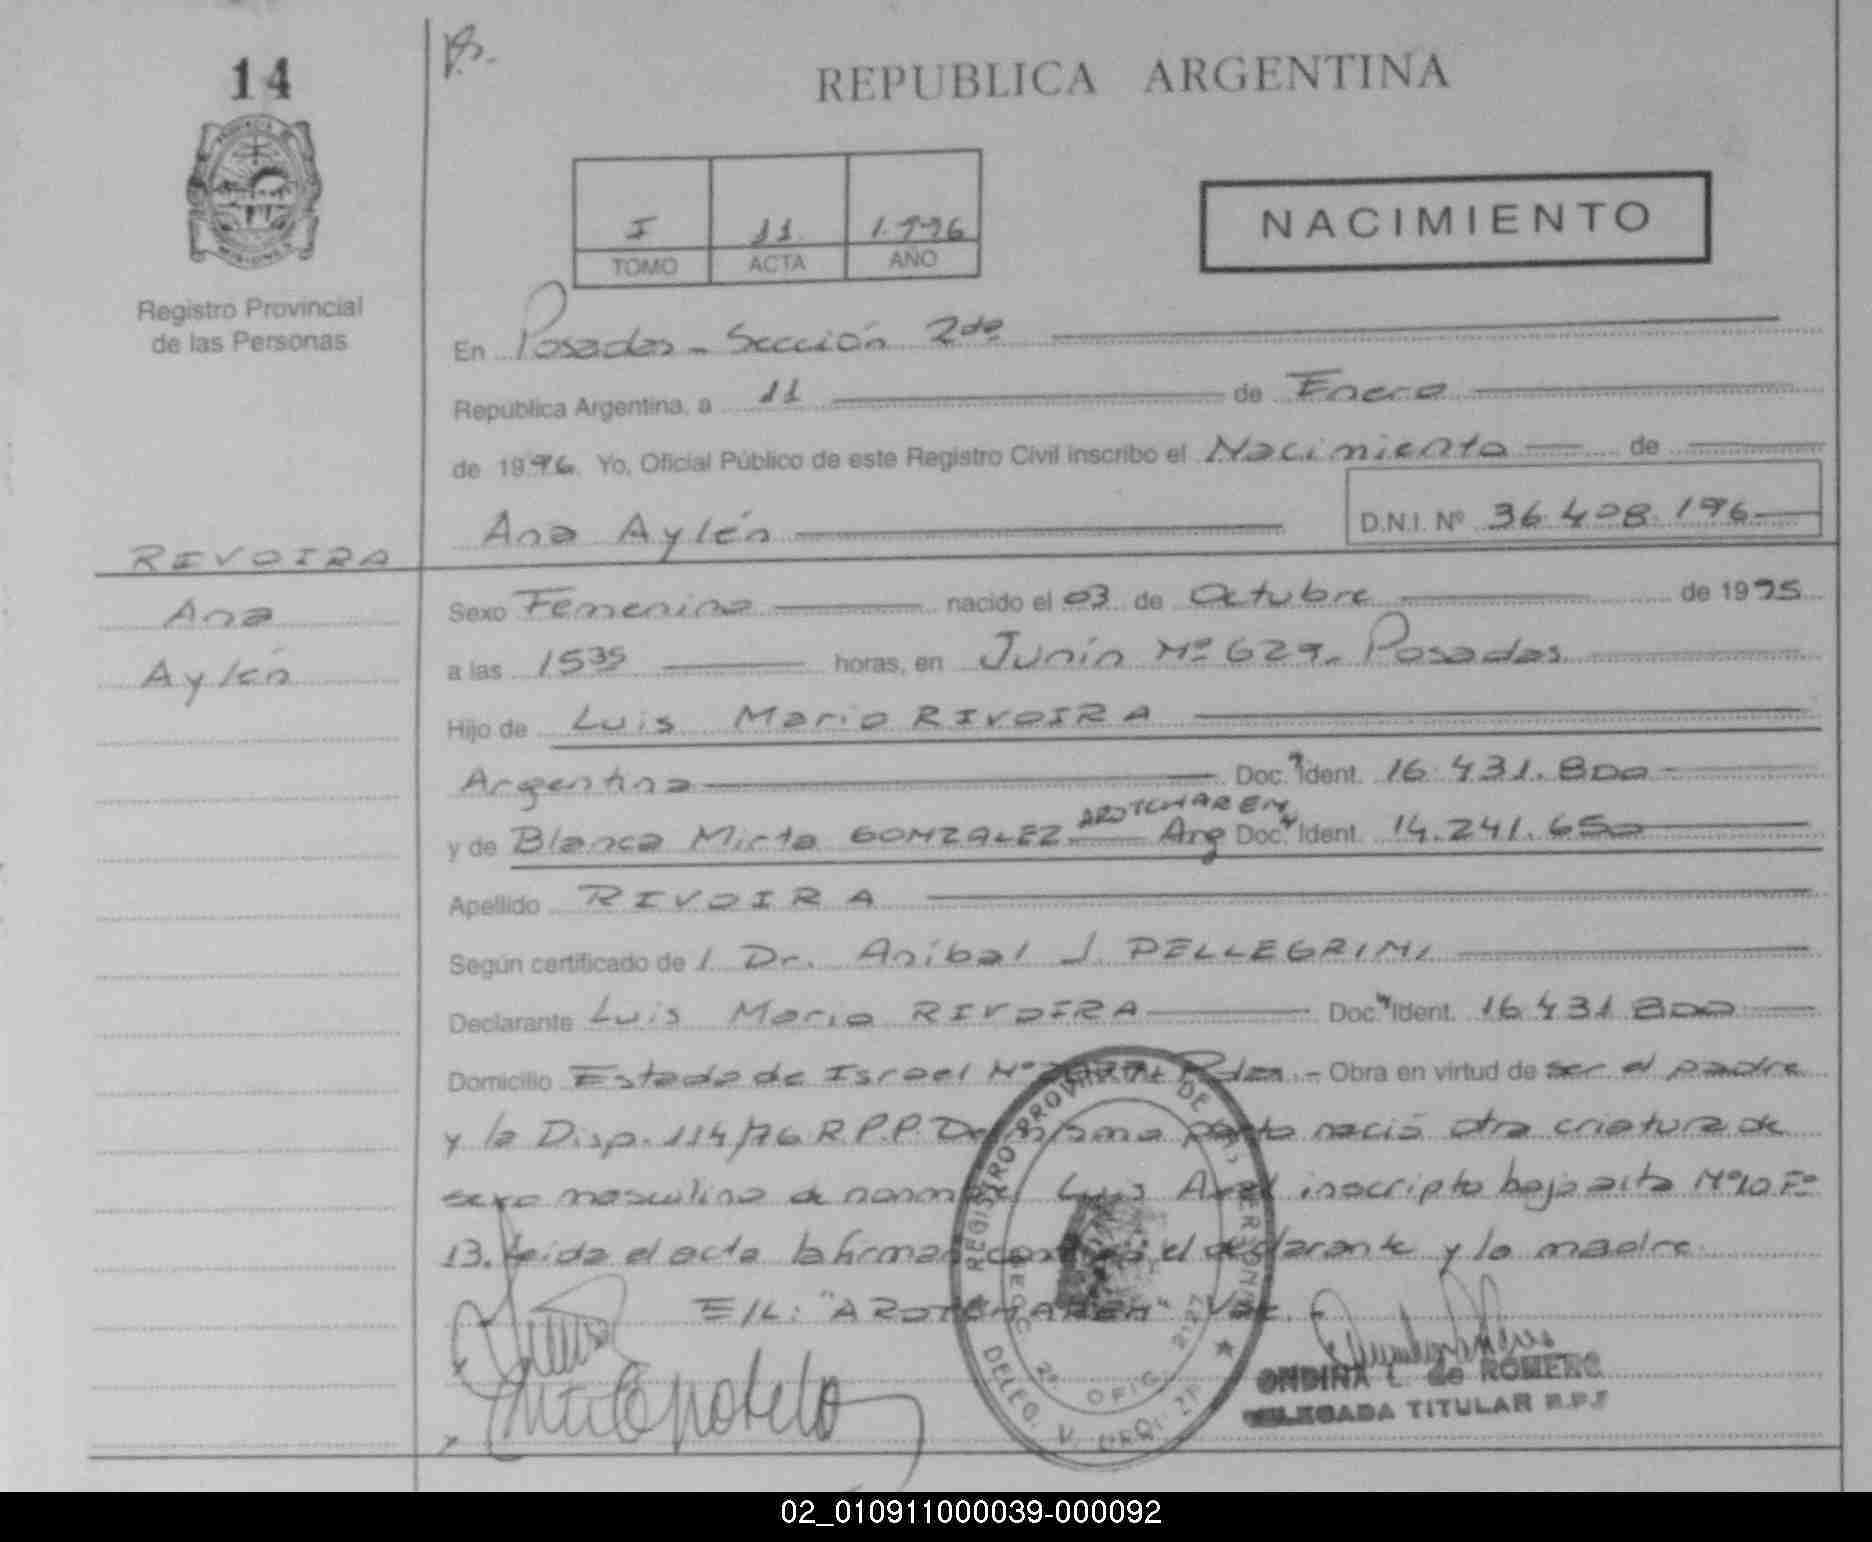 14
REPUBLICA ARGENTINA
I 11 1.996
TOMO ACTA AÑO
NACIMIENTO
Registro Provincial
de las Personas
En Posadas - Sección 2da
República Argentina, a 11 de Enero
de 1996. Yo, Oficial Público de este Registro Civil inscribo el Nacimiento de
Ana Aylén D.N.I. Nº 36.408.196
RIVOIRA
Ana
Aylén
Sexo Femenino nacido el 03 de Octubre de 1995
a las 1535 horas, en Junín Nº 629. Posadas
Hijo de Luis Mario RIVOIRA
Argentina Doc. Ident. 16.431.800
AROTCHAREM
y de Blanca Mirta GONZALEZ Arg Doc. Ident. 14.241.650
Apellido RIVOIRA
Según certificado de l Dr. Aníbal J. PELLEGRINI
Declarante Luis Mario RIVOIRA Doc. Ident. 16.431.800
Domicilio Estado de Israel Nº Pdas. - Obra en virtud de ser el padre
y la Disp. 114/76 R.P.P. Del mismo parto nació otra criatura de
sexo masculino de nombre Luis Axel inscripto bajo acta Nº 10 Fº
13. Leida el acta la firman el declarante y la madre.
E/L: "AROTCHAREM" Vale.
REGISTRO PROVINCIAL DE LAS PERSONAS
2ª. OFIC. 2127
DELEG. V. URQUIZA
ONDINA L. de ROMERO
DELEGADA TITULAR R.P.P
02_010911000039-000092